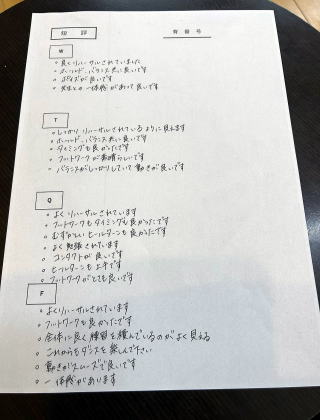 短評
背番号
W
○ 良くリハーサルされていました
○ ホールド、バランス共に良いです
○ ポイズが良いです
○ 先生との一体感があって良いです
T
○ しっかりリハーサルされているように見えます
○ ホールド、バランス共に良いです
○ タイミングも良かったです
○ フットワークが素晴らしいです
○ バランスがしっかりしていて動きが良いです
Q
○ よくリハーサルされています
○ フットワークもタイミングも良かったです
○ むずかしいヒールターンも良かったです
○ よく勉強されています
○ コンタクトが良いです
○ ヒールターンも上手です
○ フットワークがとても良いです
F
○ よくリハーサルされています
○ フットワークも良かったです
○ 全体に良く練習を積んでいるのがよく見える
○ これからもダンスを楽しんで下さい
○ 動きがスムーズで良いです
○ 一体感があります